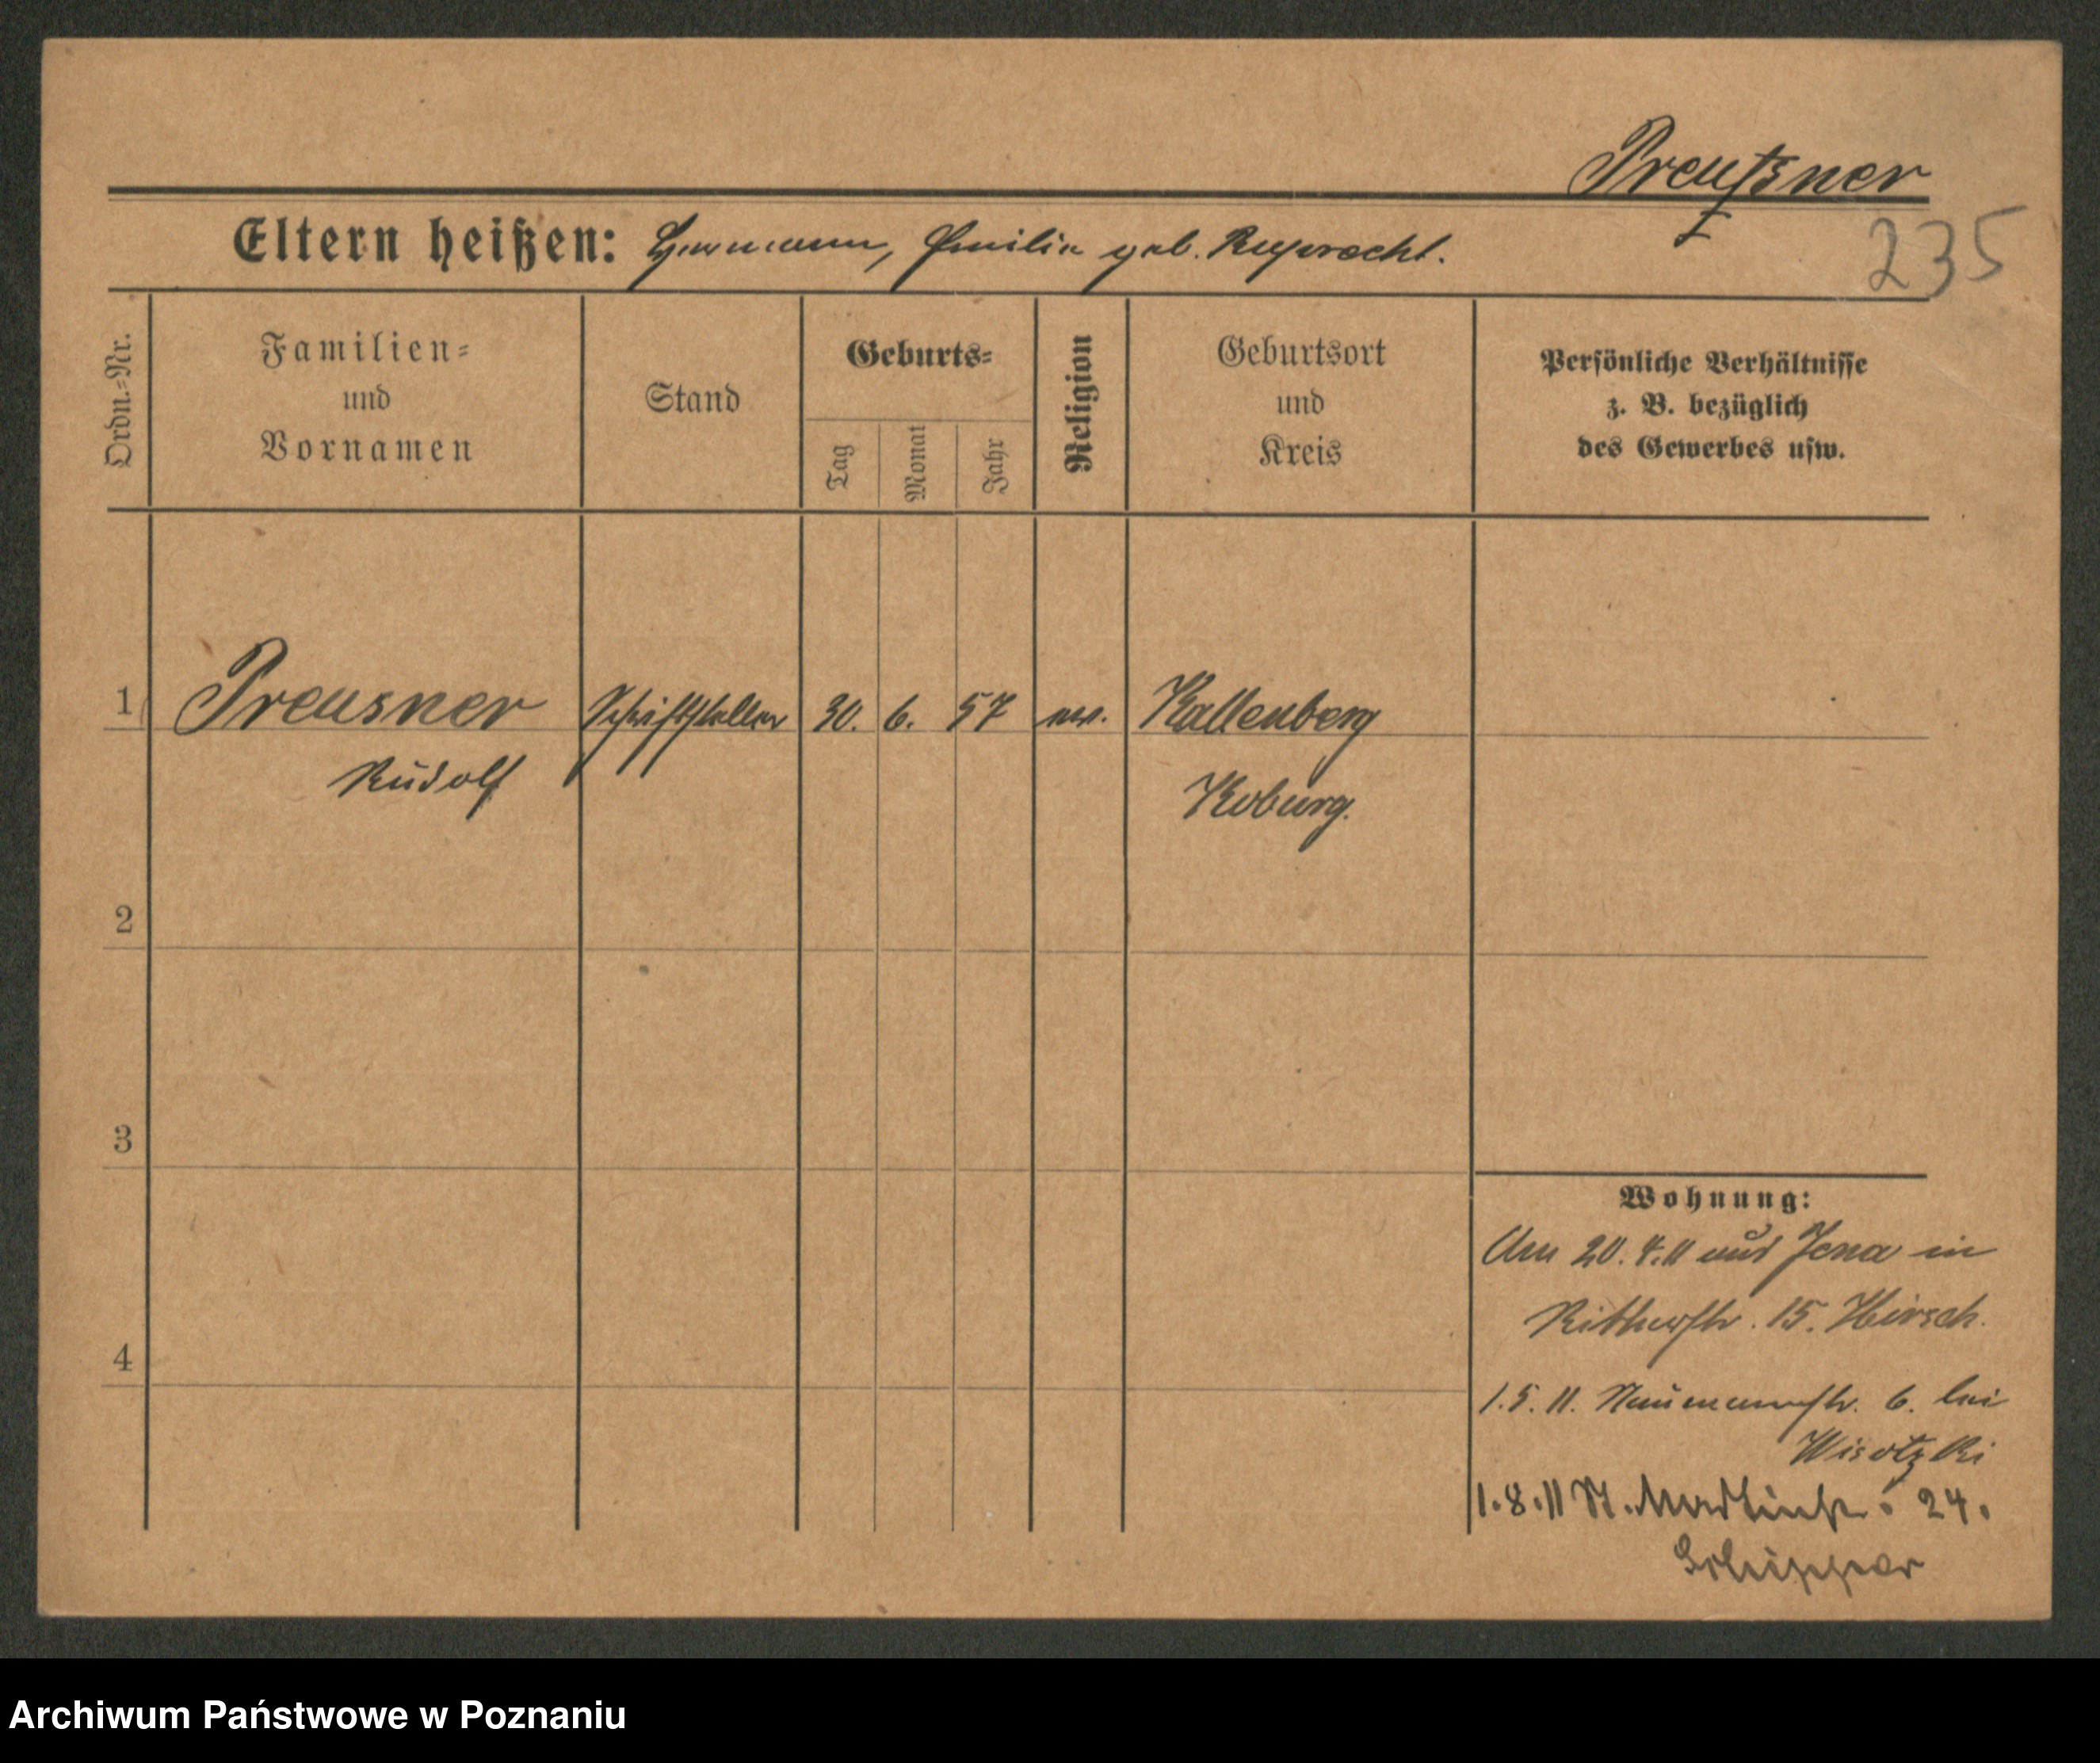 Preußner
I
235
Eltern heißen: Hermann, Emilie geb. Ruprecht.
Ordn.-Nr.
Familien-
und
Vornamen
Stand
Geburts-
Tag
Monat
Jahr
Religion
Geburtsort
und
Kreis
Persönliche Verhältnisse
z. B. bezüglich
des Gewerbes usw.
1 Preusner Schriftsteller 30. 6. 57 ev. Kallenberg
Rudolf Koburg.
2
3
4
Wohnung:
Am 20.4.11 aus Jena in
Ritterstr. 15. Hirsch.
1.5.11. Naumannstr. 6. bei
Wisotzki
1.8.11 St. Martinstr. 24.
Archiwum Państwowe w Poznaniu